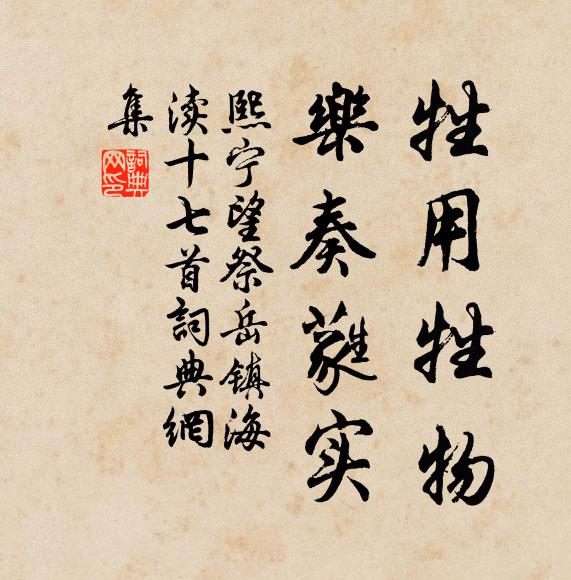 牲用牲物
樂奏蕤实
熙宁望祭岳镇海
渎十七首詞典網
集
詞典
网印